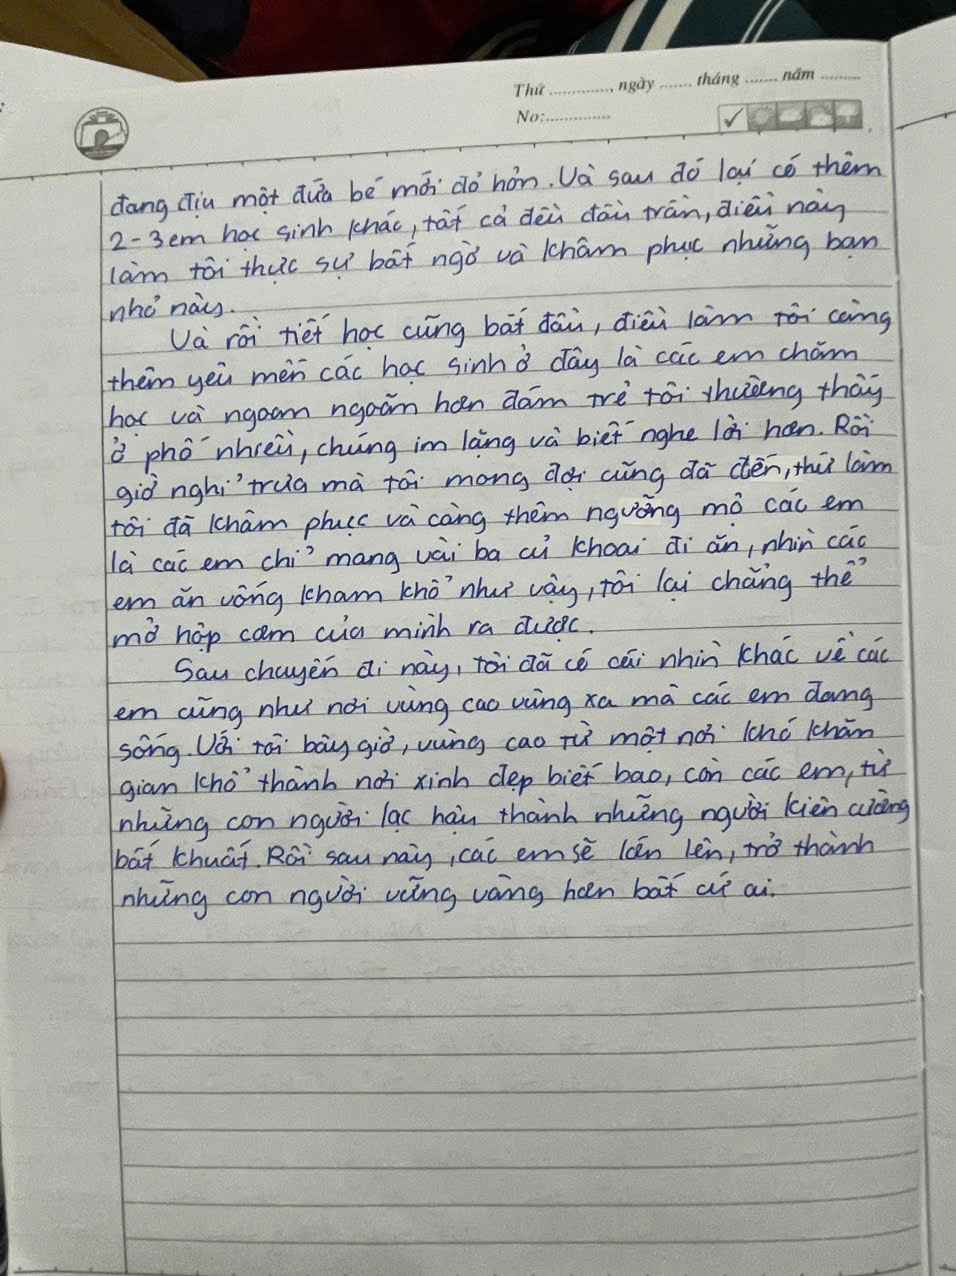 Thứ ............., ngày ....... tháng ....... năm .........
No:.............
đang địu một đứa bé mới đỏ hỏn. Và sau đó lại có thêm
2-3 em học sinh khác, tất cả đều đầu trần, điều này
làm tôi thực sự bất ngờ và khâm phục những bạn
nhỏ này.
Và rồi tiết học cũng bắt đầu, điều làm tôi càng
thêm yêu mến các học sinh ở đây là các em chăm
học và ngoan ngoãn hơn đám trẻ tôi thường thấy
ở phố nhiều, chúng im lặng và biết nghe lời hơn. Rồi
giờ nghỉ trưa mà tôi mong đợi cũng đã đến, thứ làm
tôi đã khâm phục và càng thêm ngưỡng mộ các em
là các em chỉ mang vài ba củ khoai đi ăn, nhìn các
em ăn uống kham khổ như vậy, tôi lại chẳng thể
mở hộp cơm của mình ra được.
Sau chuyến đi này, tôi đã có cái nhìn khác về các
em cũng như nơi vùng cao vùng xa mà các em đang
sống. Với tôi bây giờ, vùng cao từ một nơi khó khăn
gian khổ thành nơi xinh đẹp biết bao, còn các em, từ
những con người lạc hậu thành những người kiên cường
bất khuất. Rồi sau này, các em sẽ lớn lên, trở thành
những con người vững vàng hơn bất cứ ai.